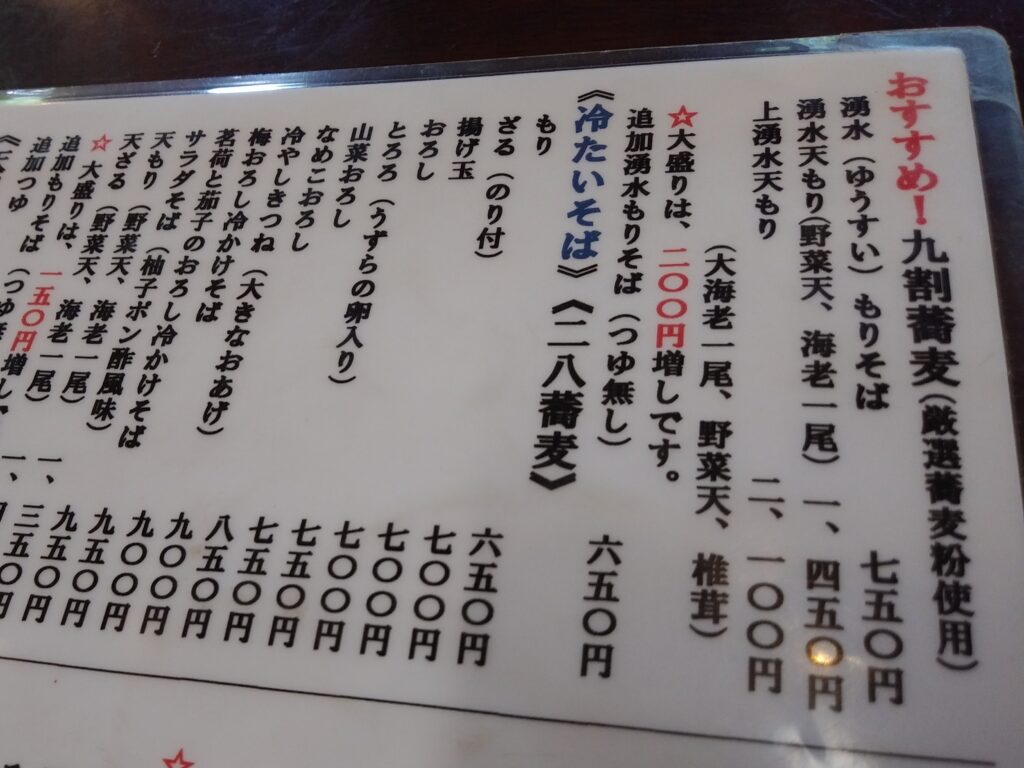 おすすめ！九割蕎麦（厳選蕎麦粉使用）
湧水（ゆうすい）もりそば 七五〇円
湧水天もり（野菜天、海老一尾） 一、四五〇円
上湧水天もり 二、一〇〇円
（大海老一尾、野菜天、椎茸）
☆大盛りは、二〇〇円増しです。
追加湧水もりそば（つゆ無し） 六五〇円
《冷たいそば》《二八蕎麦》
もり 六五〇円
ざる（のり付） 七〇〇円
揚げ玉 七〇〇円
おろし 七〇〇円
とろろ（うずらの卵入り） 七五〇円
山菜おろし 七五〇円
なめこおろし 八五〇円
冷やしきつね（大きなおあげ） 九〇〇円
梅おろし冷かけそば 九〇〇円
茗荷と茄子のおろし冷かけそば 九五〇円
サラダそば（柚子ポン酢風味） 九五〇円
天もり（野菜天、海老一尾） 一、三五〇円
天ざる（野菜天、海老一尾） 一、
☆大盛りは、一五〇円増し
追加もりそば（つゆ
追加つゆ
☆